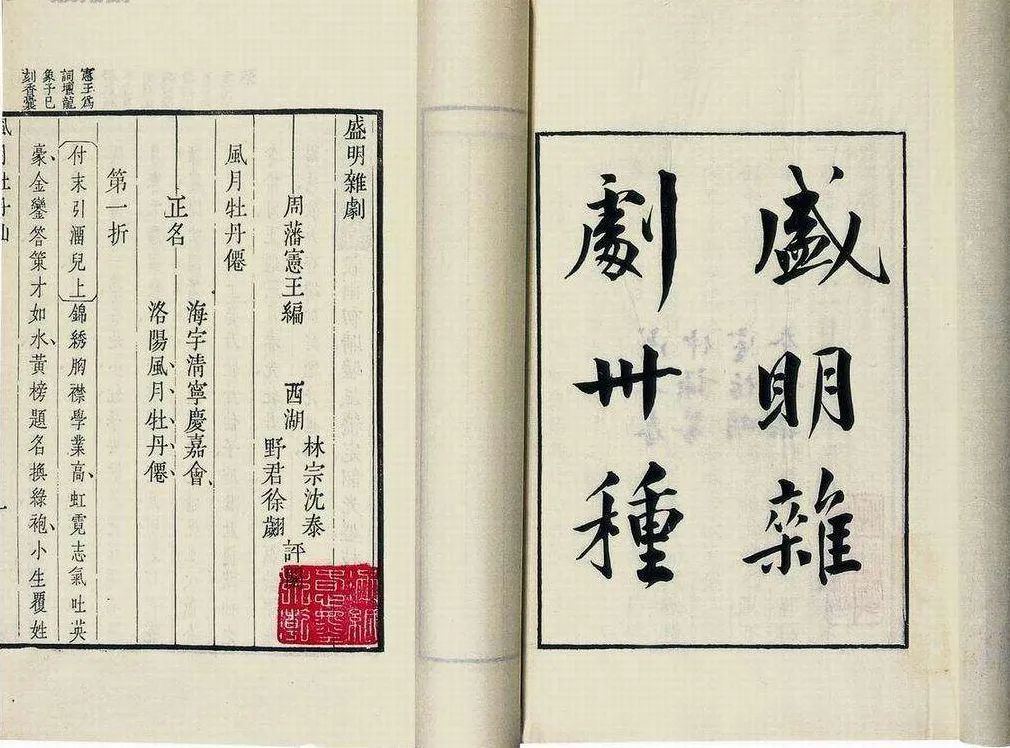 盛明雜
劇卅種
盛明雜劇
周藩憲王編 西湖
林宗沈泰
野君徐翽
評
風月牡丹僊
正名
海宇清寧慶嘉會、
洛陽風月牡丹僊、
第一折
付末引 兒上 錦綉胸襟學業高、虹霓志氣吐英
豪、金鑾答策才如水、黃榜題名換綠袍、小生覆姓
憲王爲
詞壇龍
象予已
刻香囊